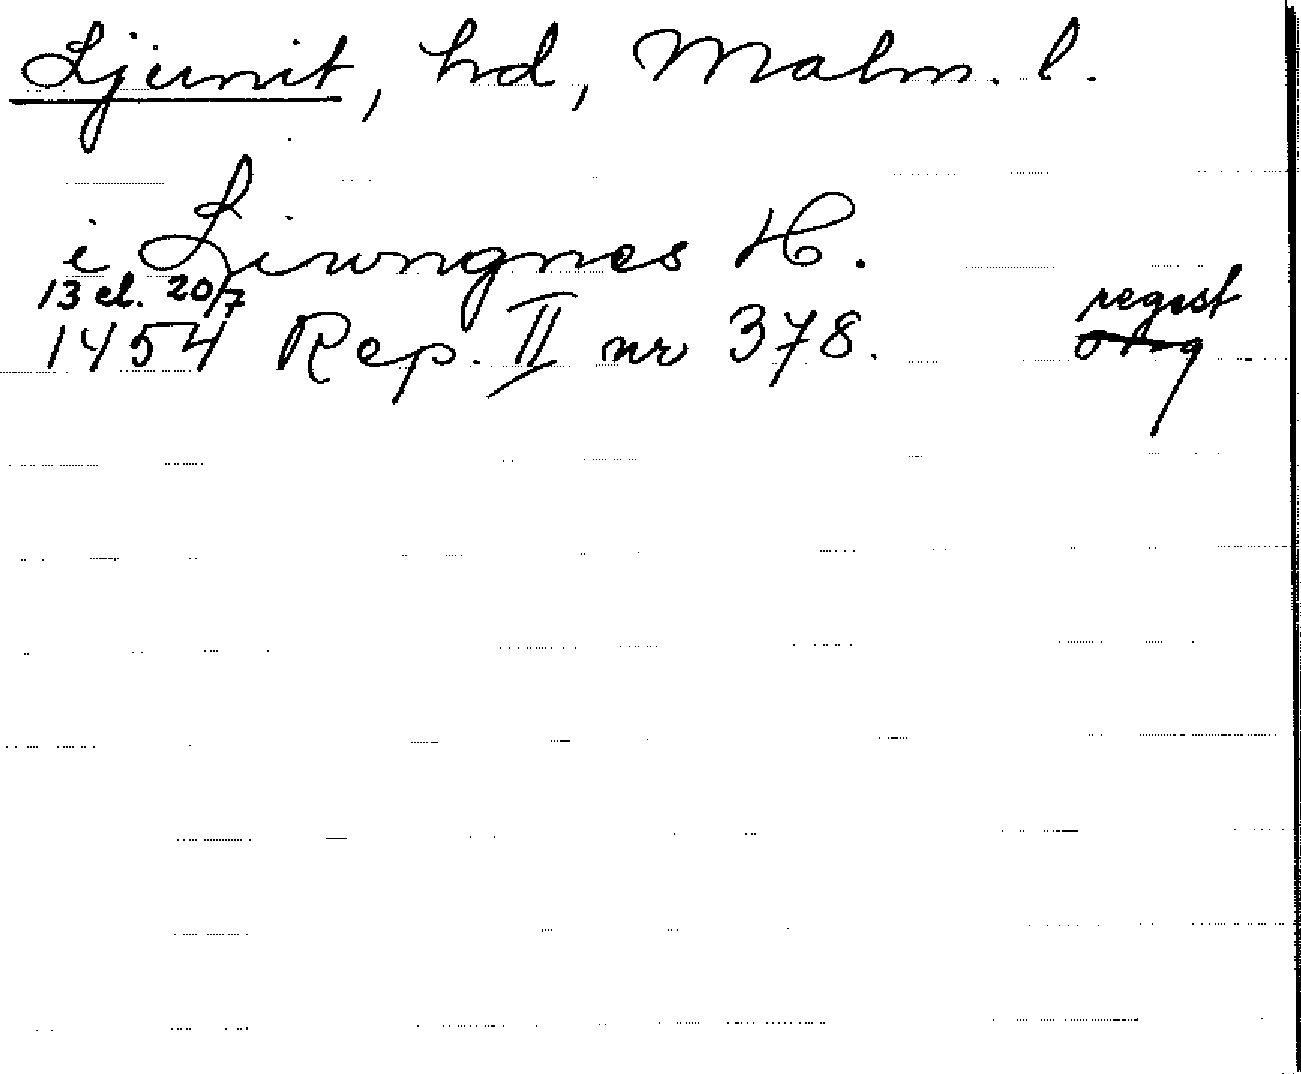 Ljunit, hd, Malm. l.
i Liwngnes H.
13 el. 20/7
1454 Rep. II nr 378.
regist
orig